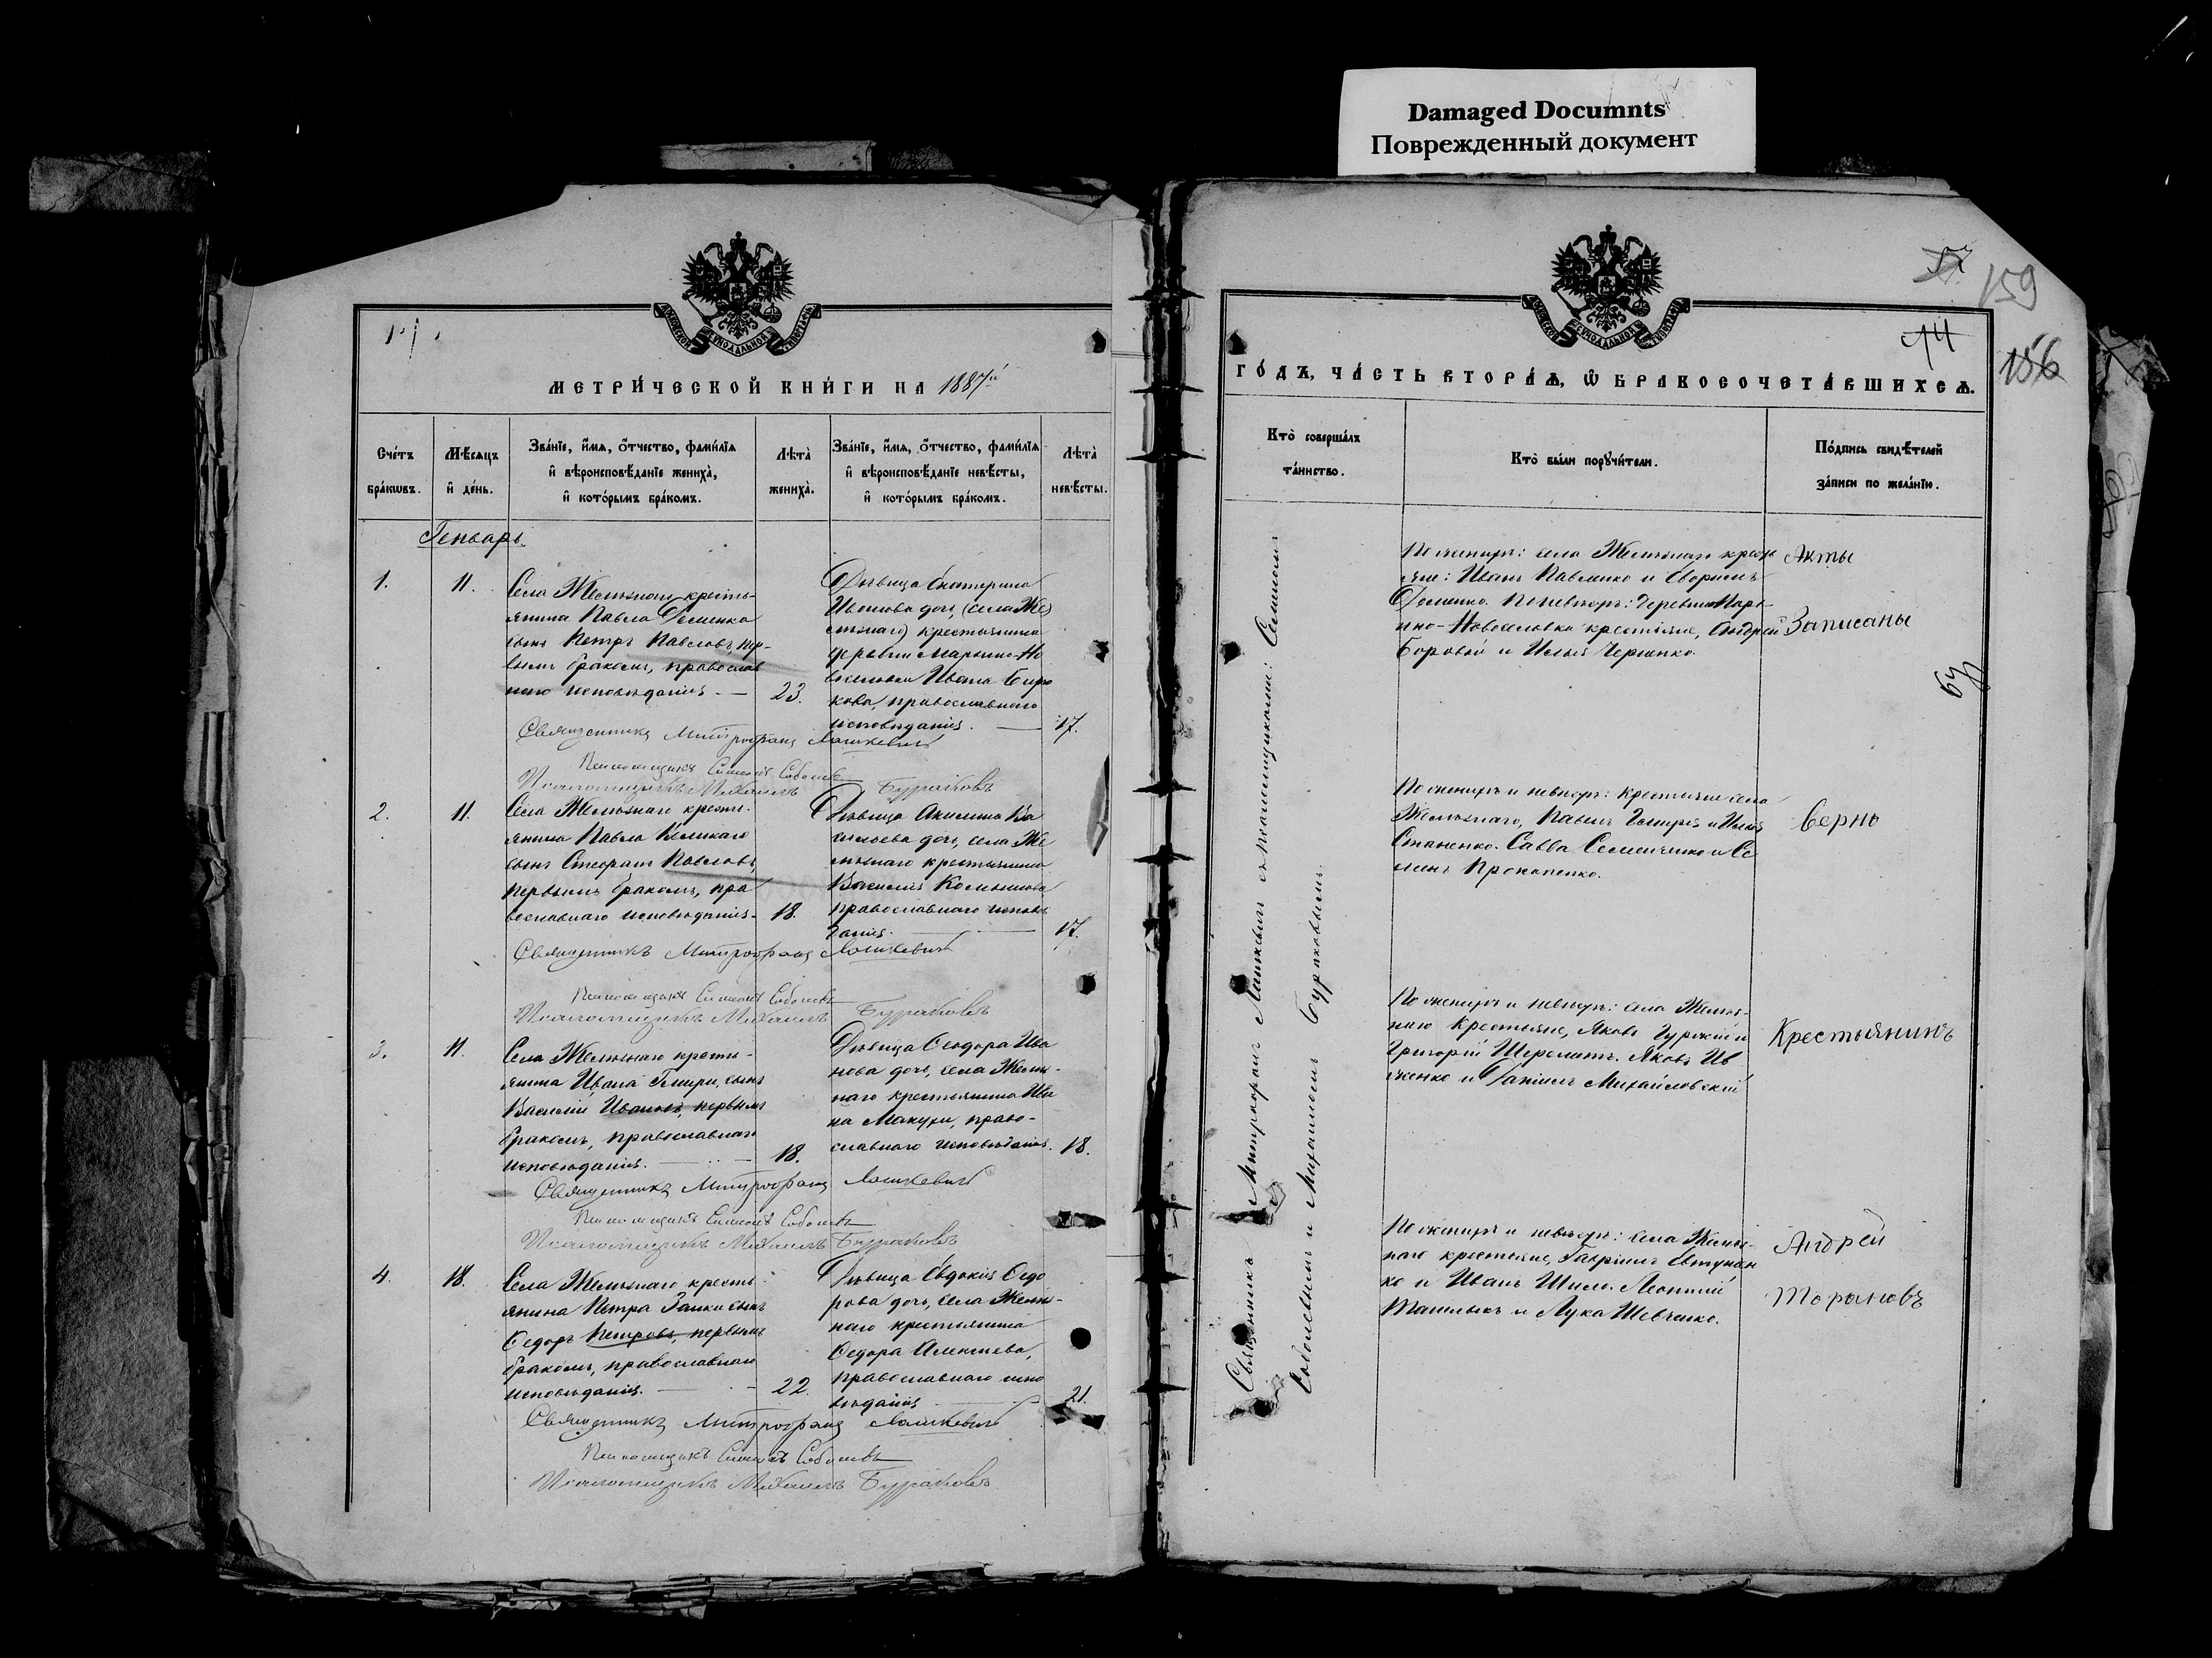 Damaged Documnts
Поврежденный документ
МЕТРИ́ЧЕСКОЙ КНИ́ГИ НА 1887й
Сче́тъ бра́кѡвъ.
Мѣ́сяцъ и҆ де́нь.
Зва́нїе, и҆́мѧ, ѻ҆́тчество, фами́лїѧ и҆ вѣроисповѣ́данїе жениха̀, и҆ кото́рымъ бра́комъ.
Лѣта̀ жениха̀.
Зва́нїе, и҆́мѧ, ѻ҆́тчество, фами́лїѧ и҆ вѣроисповѣ́данїе невѣ́сты, и҆ кото́рымъ бра́комъ.
Лѣта̀ невѣ́сты.
Генварь.
1.
11.
Села Желѣзнаго кресть-
янина Павла Доменка
сынъ Петръ Павловъ, пер-
вымъ бракомъ, православ
наго исповѣданія.
23.
Дѣвица Екатерина
Иванова дочь, (села Же
лѣзнаго) крестьянина
деревни Марьино-Но
воселовки Ивана Бирю
кова, православнаго
исповѣданія.
17.
Священникъ Митрофанъ Лашкевичъ
Псаломщикъ Симеонъ Соболевъ
Псаломщикъ Михаилъ Бураковъ
2.
11.
Села Желѣзнаго кресть-
янина Павла Великаго
сынъ Стефанъ Павловъ,
первымъ бракомъ, пра
вославнаго исповѣданія.
18.
Дѣвица Акилина Ва
сильева дочь, села Же
лѣзнаго крестьянина
Василія
православнаго исповѣ
данія.
17.
Священникъ Митрофанъ Лашкевичъ
Псаломщикъ Симеонъ Соболевъ
Псаломщикъ Михаилъ Бураковъ
3.
11.
Села Желѣзнаго кресть-
янина Ивана Гмыри, сынъ
Василій Ивановъ, первымъ
бракомъ, православнаго
исповѣданія.
18.
Дѣвица Ѳеодора Ива
нова дочь, села Желѣз-
наго крестьянина Ива
на Макухи, право-
славнаго исповѣданія.
18.
Священникъ Митрофанъ Лашкевичъ
Псаломщикъ Симеонъ Соболевъ
Псаломщикъ Михаилъ Бураковъ
4.
18.
Села Желѣзнаго кресть
янина Петра Заики сынъ
Ѳедоръ Петровъ, первымъ
бракомъ, православнаго
исповѣданія.
22.
Дѣвица Евдокія Ѳедо
рова дочь, села Желѣз-
наго крестьянина
Ѳедора Алексѣева,
православнаго испо
вѣданія
21.
Священникъ Митрофанъ Лашкевичъ
Псаломщикъ Симеонъ Соболевъ
Псаломщикъ Михаилъ Бураковъ
159
14
156
ГО́ДЪ, ЧА́СТЬ ВТОРА́Ѧ, Ѡ҆ БРАКОСОЧЕТА́ВШИХСѦ.
Кто̀ соверша́лъ та́инство.
Кто̀ бы́ли порꙋчи́тели.
По́дпись свидѣ́телей за́писи по жела́нїю.
Священникъ Митрофанъ Лашкевичъ съ псаломщиками: Симеономъ
Соболевымъ и Михаиломъ Бураковымъ.
По женихѣ: села Желѣзнаго кресть
яне: Иванъ Павленко и Ефремъ
Доменко. По невѣстѣ: деревни Марь
ино-Новоселовки крестьяне, Андрей
Боровой и Илья
По женихѣ и невѣстѣ: крестьяне села
Желѣзнаго, Павелъ Гмыря и Илья
Степаненко. Савва Семенченко и Се
менъ Прокопенко.
По женихѣ и невѣстѣ: села Желѣз-
наго крестьяне, Яковъ Гуржій и
Григорій Шереметъ. Яковъ Ив
ченко и Даніилъ Михайловскій
По женихѣ и невѣстѣ: села Желѣз-
наго крестьяне, Гавріилъ Евтушен
ко и Иванъ Шило. Леонтій
Ташлыкъ и Лука Шевченко.
Акты
Записаны
Верно
Крестьянинъ
Андрей
Торановъ